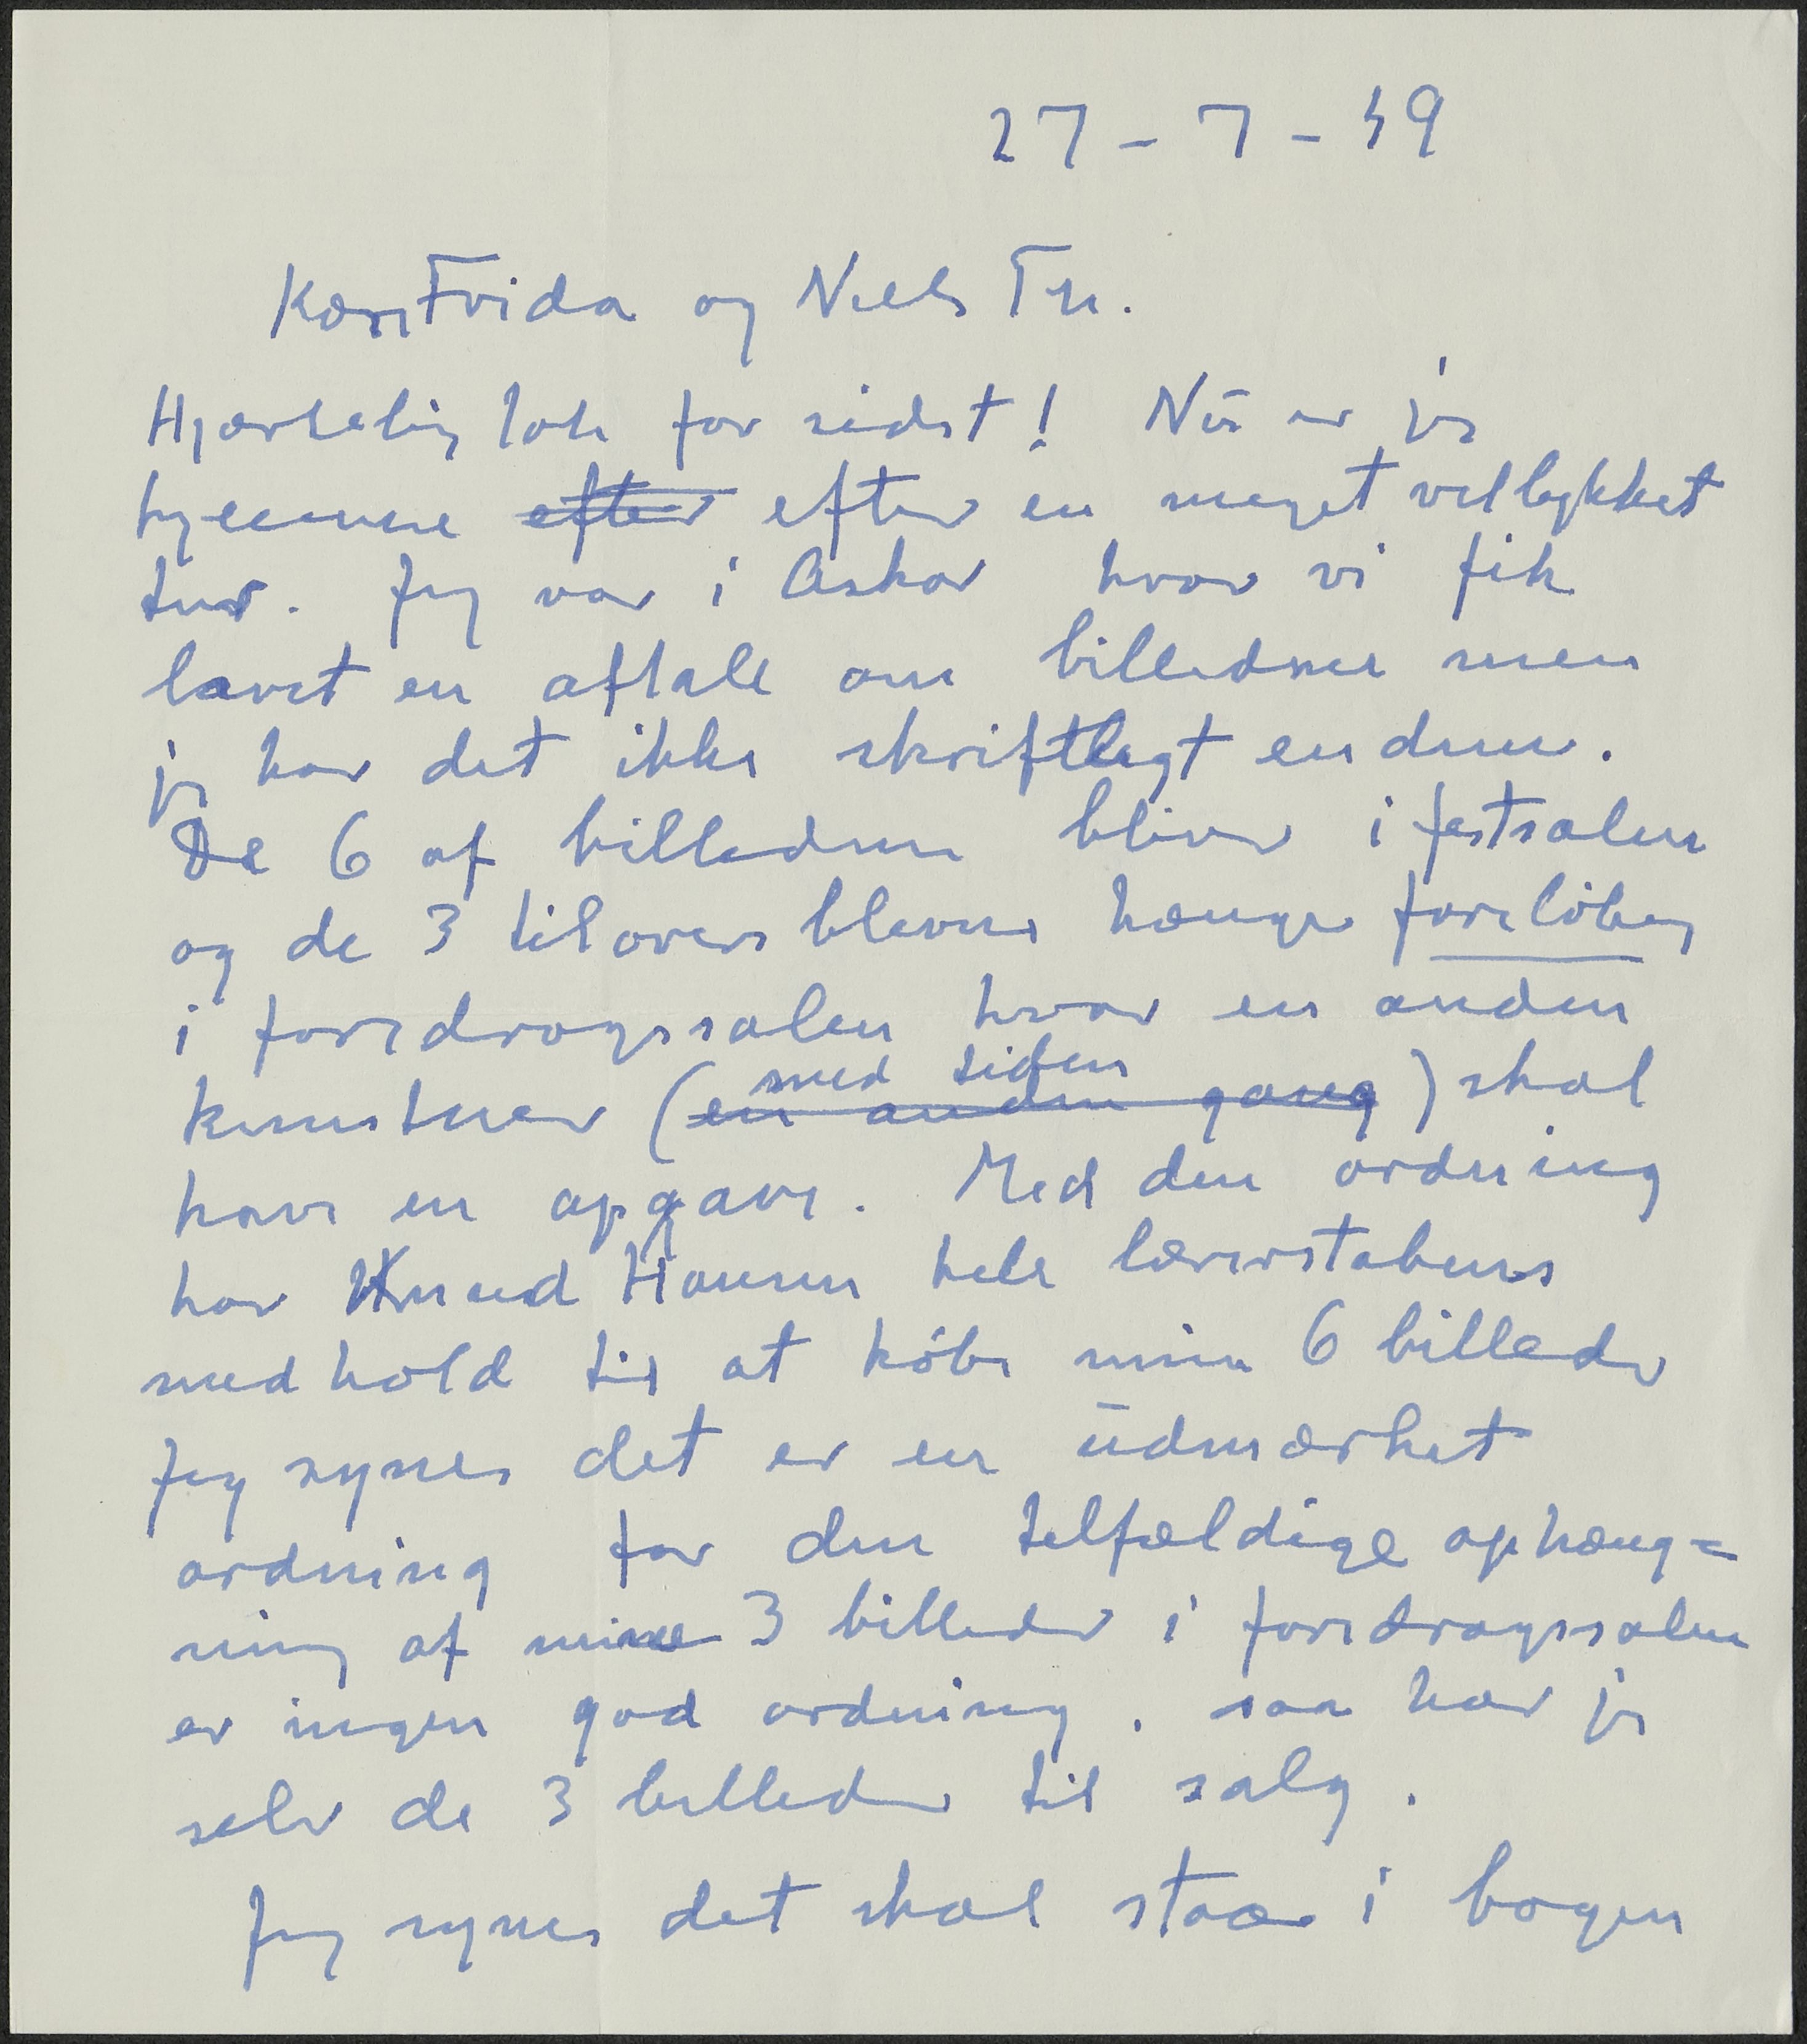 27-7-59
Kære Frida og Niels Th.
Hjærtelig tak for sidst! Nū er jeg
hjemme ~~efter~~ efter en meget vellykket
tur. Jeg var i Askov hvor vi fik
lavet en aftale om billederne men
jeg har det ikke skriftligt endnu.
De 6 af billederne bliver i festsalen
og de 3 tiloversblevne hænger foreløbig
i foredragssalen hvor en anden
med tiden
kunstner (~~en anden gang~~) skal
have en opgave. Med den ordning
har Knud Hansen hele lærerstabens
medhold til at købe mine 6 billeder
Jeg synes det er en ūdmærket
ordning for den tilfældige ophæng=
ning af mine 3 billeder i foredragssalen
er ingen god ordning. saa har jeg
selv de 3 billeder til salg.
Jeg synes det skal staa i bogen